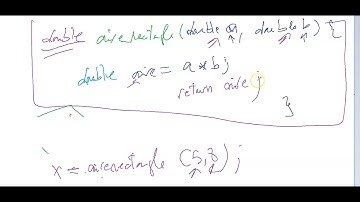 double airerectangle(double a, double b) {
double aire = a * b;
return aire;
}
x = airerectangle (5,8);